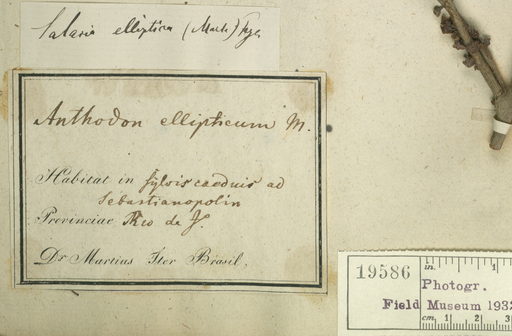 Salacia elliptica (Mart.) Peyr.
Anthodon ellipticum M.
Habitat in sylvis caeduis ad
Sebastianopolin
Provinciae Rio de J.
Dr Martius Iter Brasil.
19586
in. 1
Photogr.
Field Museum 1932
cm. 1 2 3